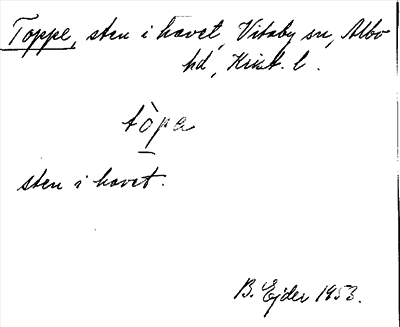 Toppe, sten i havet, Vitaby sn, Albo
hd, Krist. l.
tòpa
sten i havet.
B. Ejder 1953.